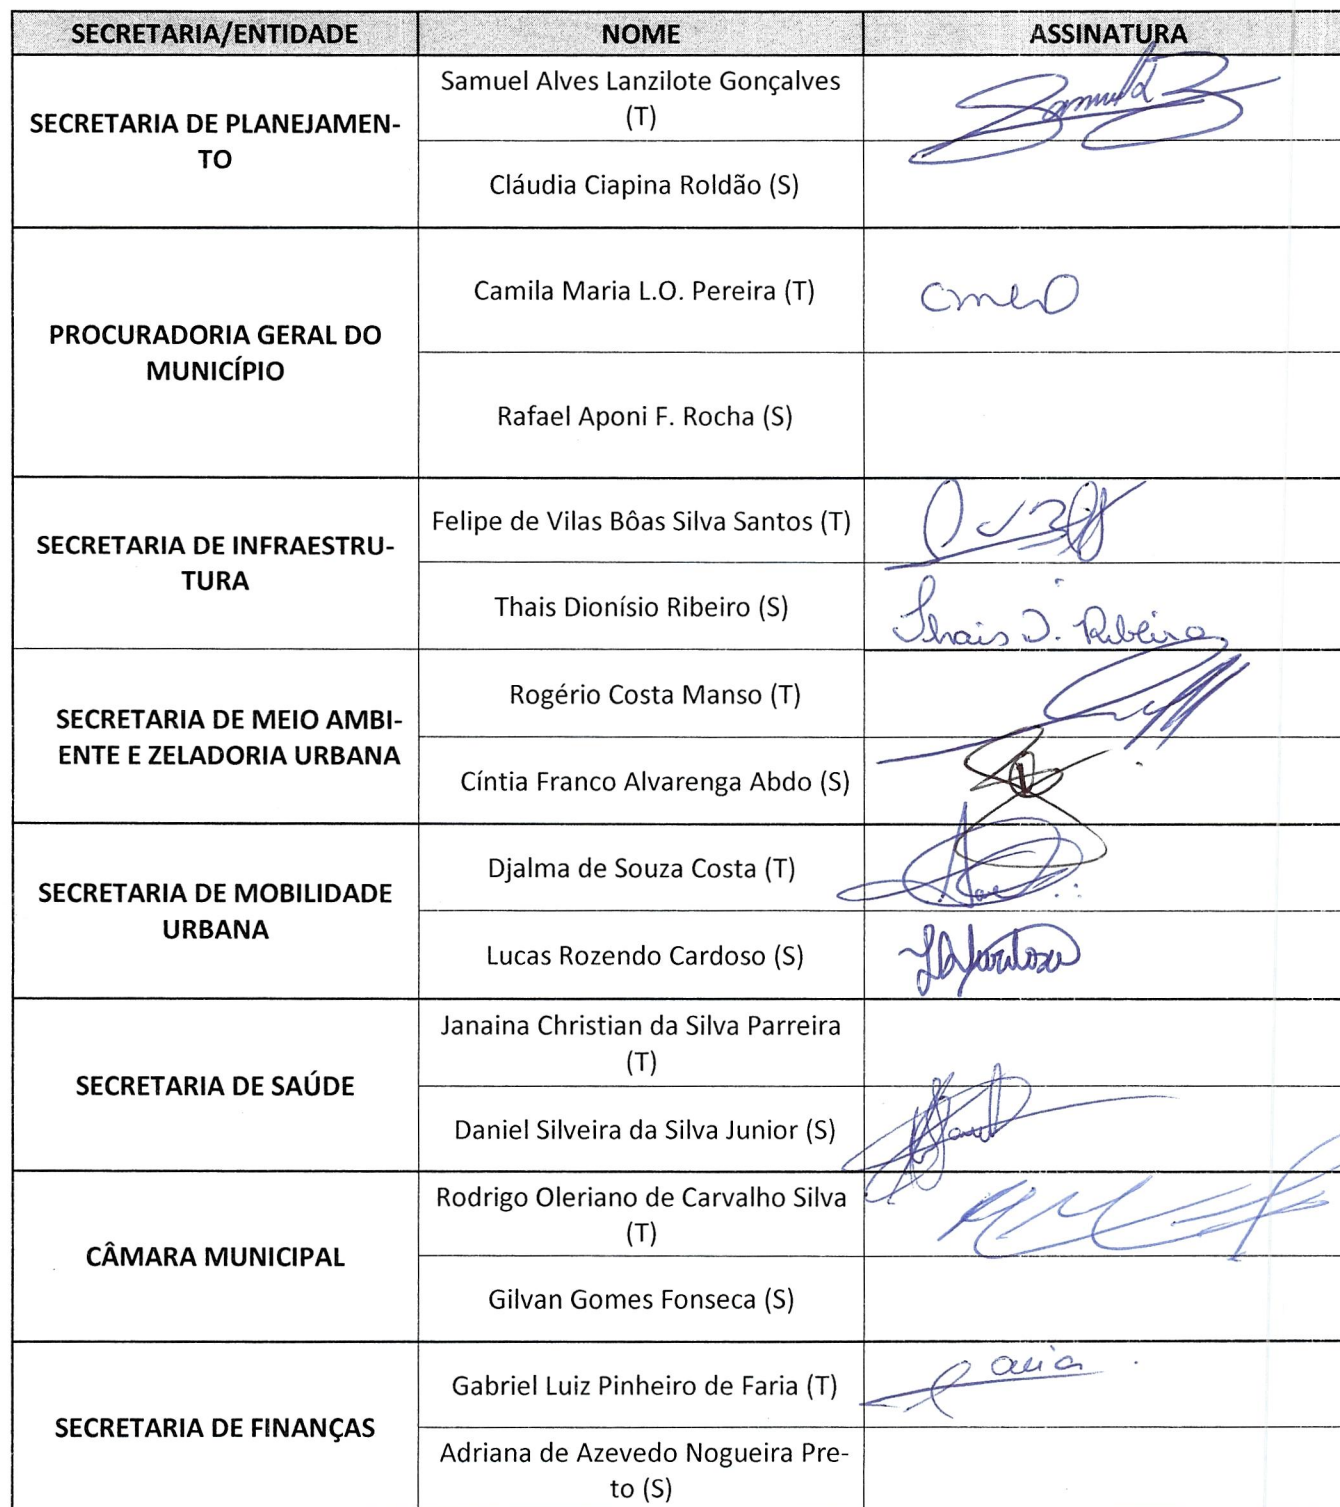 SECRETARIA/ENTIDADE NOME ASSINATURA
SECRETARIA DE PLANEJAMEN-
TO
Samuel Alves Lanzilote Gonçalves
(T)
Samuel
Cláudia Ciapina Roldão (S)
PROCURADORIA GERAL DO
MUNICÍPIO
Camila Maria L.O. Pereira (T)
Rafael Aponi F. Rocha (S)
SECRETARIA DE INFRAESTRU-
TURA
Felipe de Vilas Bôas Silva Santos (T)
Thais Dionísio Ribeiro (S)
Thais D. Ribeiro
SECRETARIA DE MEIO AMBI-
ENTE E ZELADORIA URBANA
Rogério Costa Manso (T)
Cíntia Franco Alvarenga Abdo (S)
SECRETARIA DE MOBILIDADE
URBANA
Djalma de Souza Costa (T)
Lucas Rozendo Cardoso (S)
SECRETARIA DE SAÚDE
Janaina Christian da Silva Parreira
(T)
Daniel Silveira da Silva Junior (S)
CÂMARA MUNICIPAL
Rodrigo Oleriano de Carvalho Silva
(T)
Gilvan Gomes Fonseca (S)
SECRETARIA DE FINANÇAS
Gabriel Luiz Pinheiro de Faria (T)
Adriana de Azevedo Nogueira Pre-
to (S)